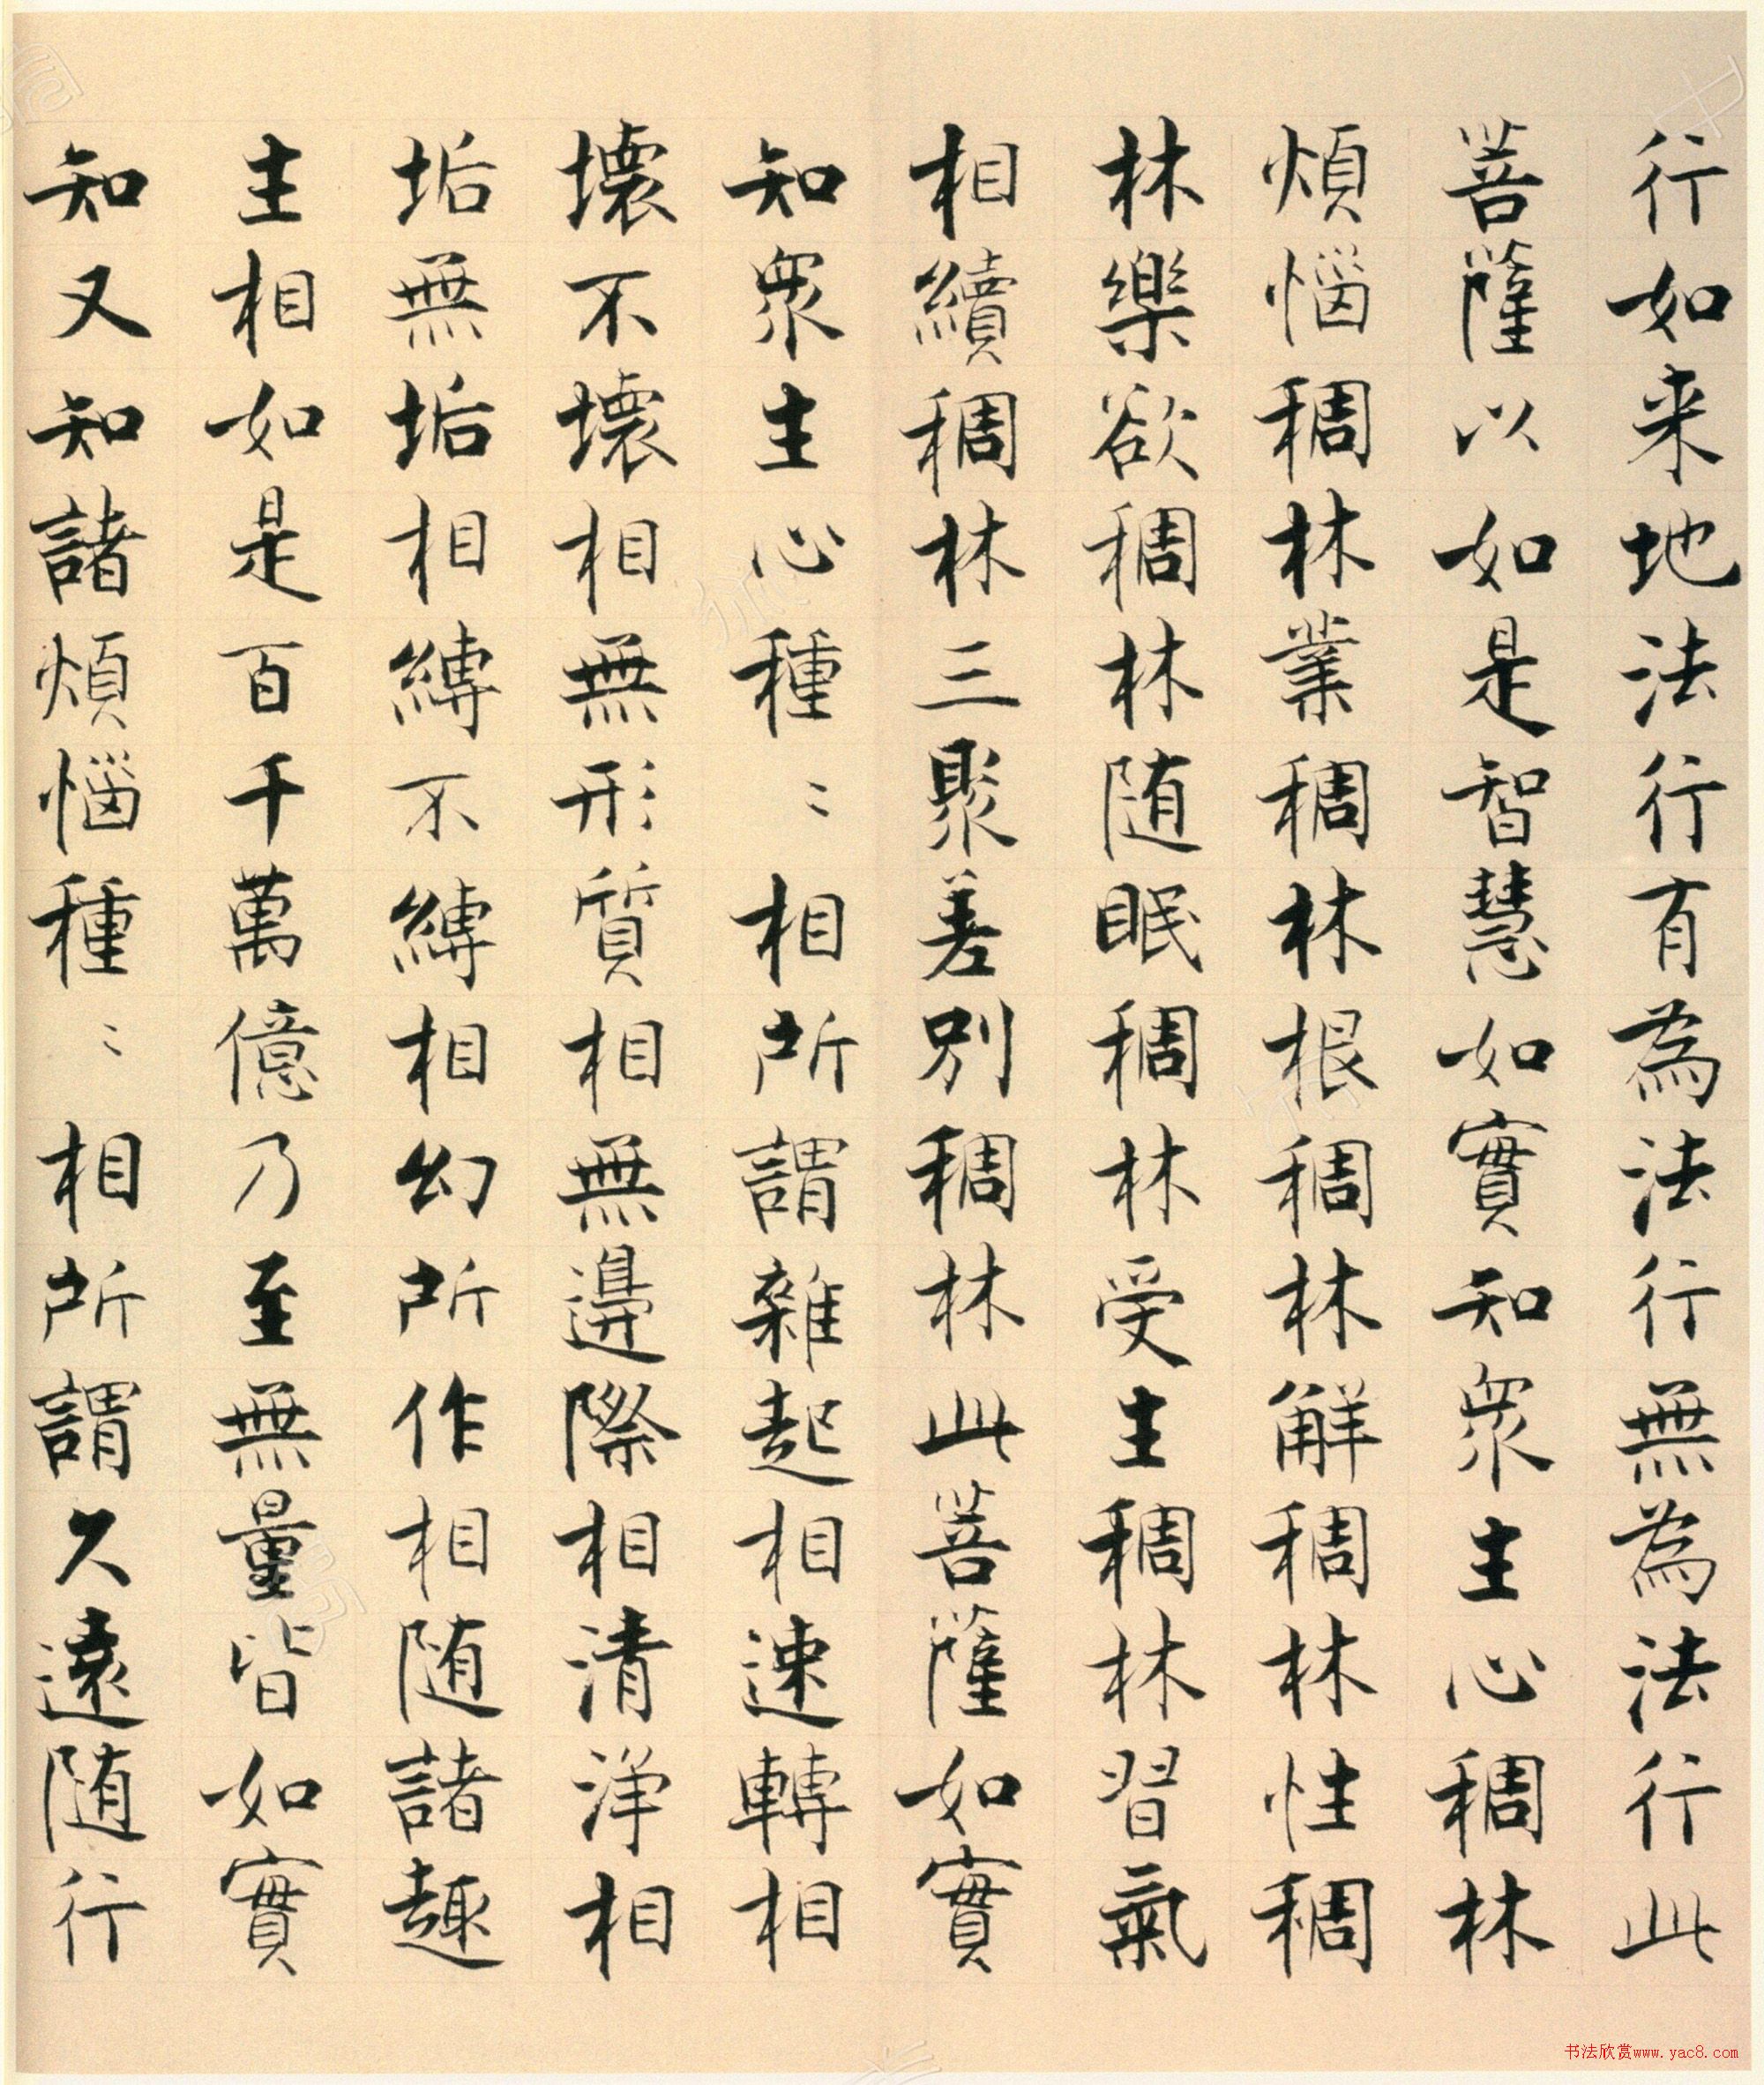 行如来地法行有為法行無為法行此
菩薩以如是智慧如實知眾生心稠林
煩惱稠林業稠林根稠林解稠林性稠
林樂欲稠林随眠稠林受生稠林習氣
相續稠林三聚差別稠林此菩薩如實
知眾生心種〻相所謂雜起相速轉相
壞不壞相無形質相無邊際相清淨相
垢無垢相縛不縛相幻所作相随諸趣
生相如是百千萬億乃至無量皆如實
知又知諸煩惱種〻相所謂久遠随行
书法欣赏www.yac8.com